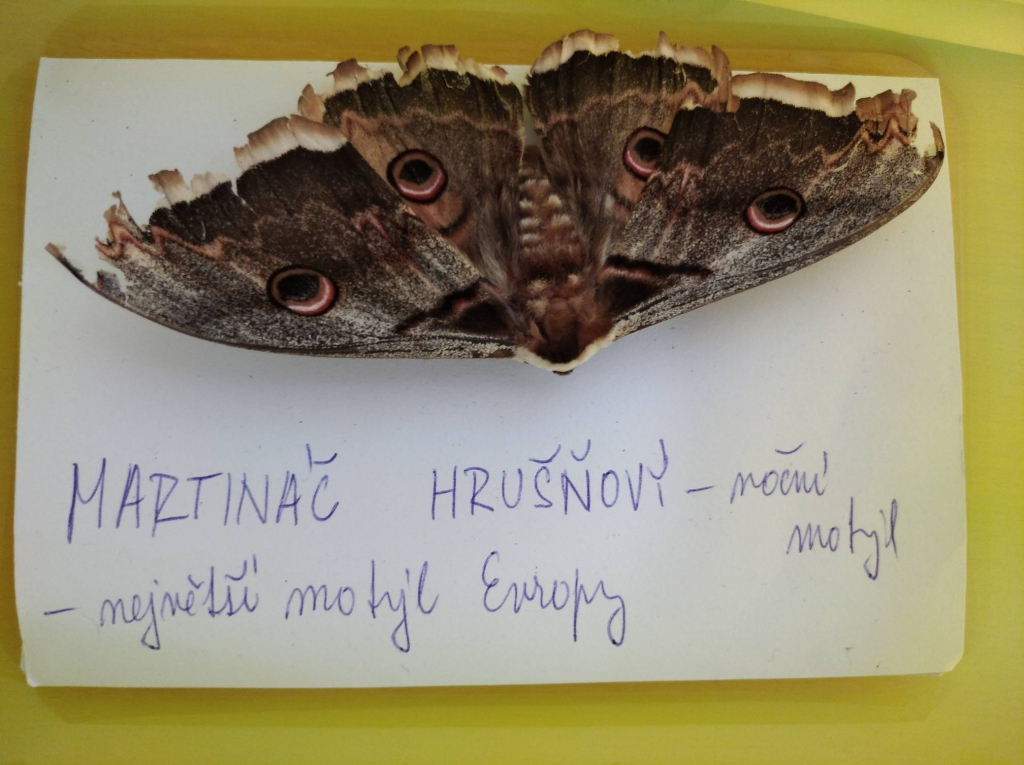 MARTINÁČ HRUŠŇOVÝ – noční
motýl
– největší motýl Evropy